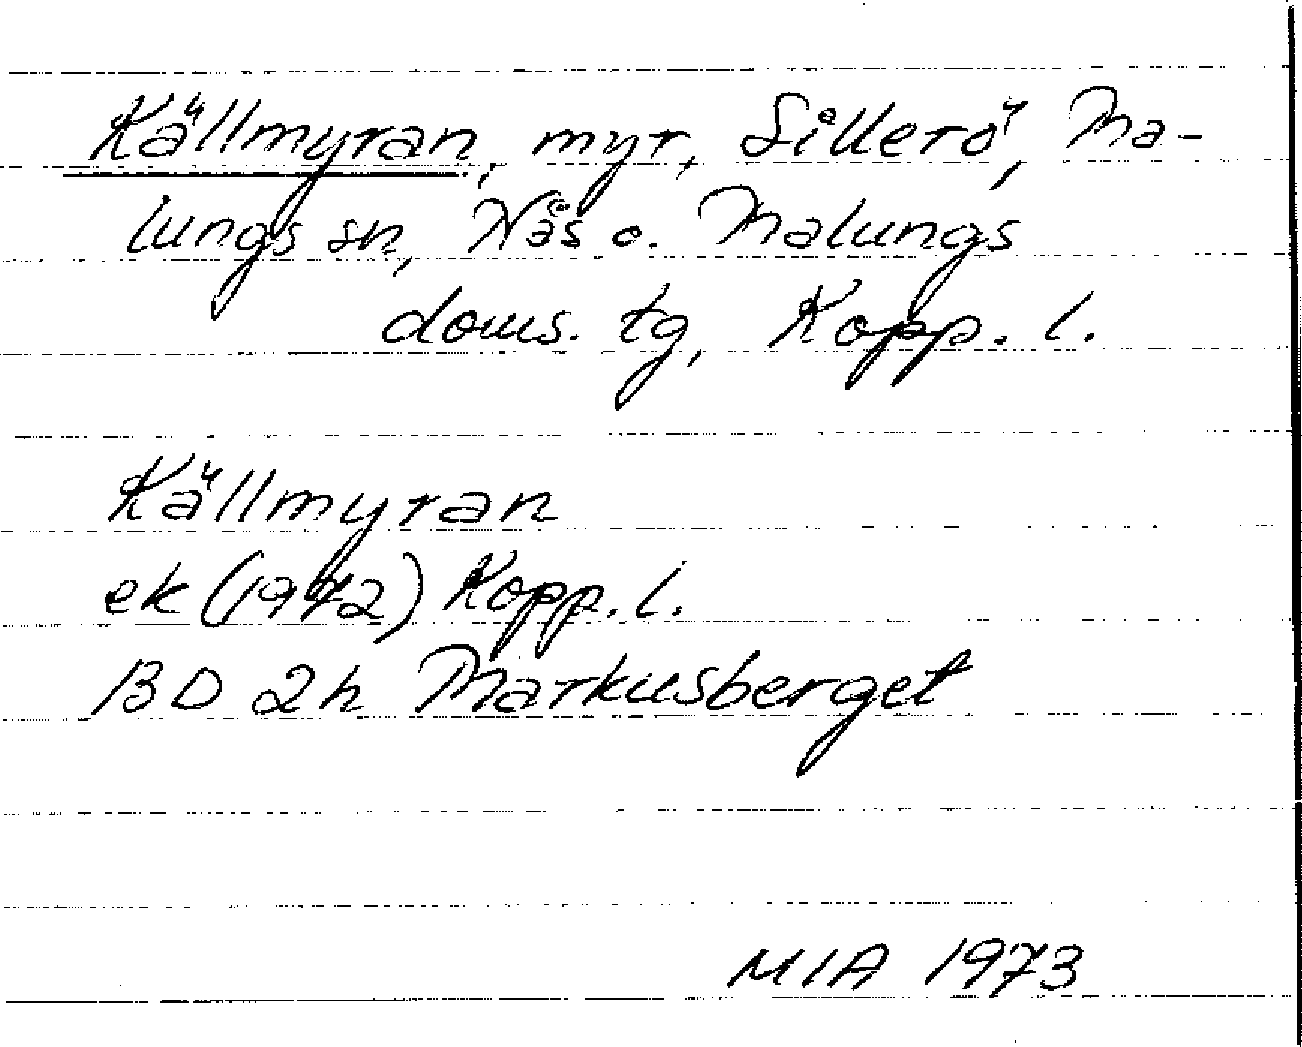 Källmyran, myr, Sillerö, Ma-
lungs sn, Nås o. Malungs
doms. tg, Kopp. l.
Källmyran
ek (1972) Kopp. l.
BD 2h Markusberget
MIA 1973